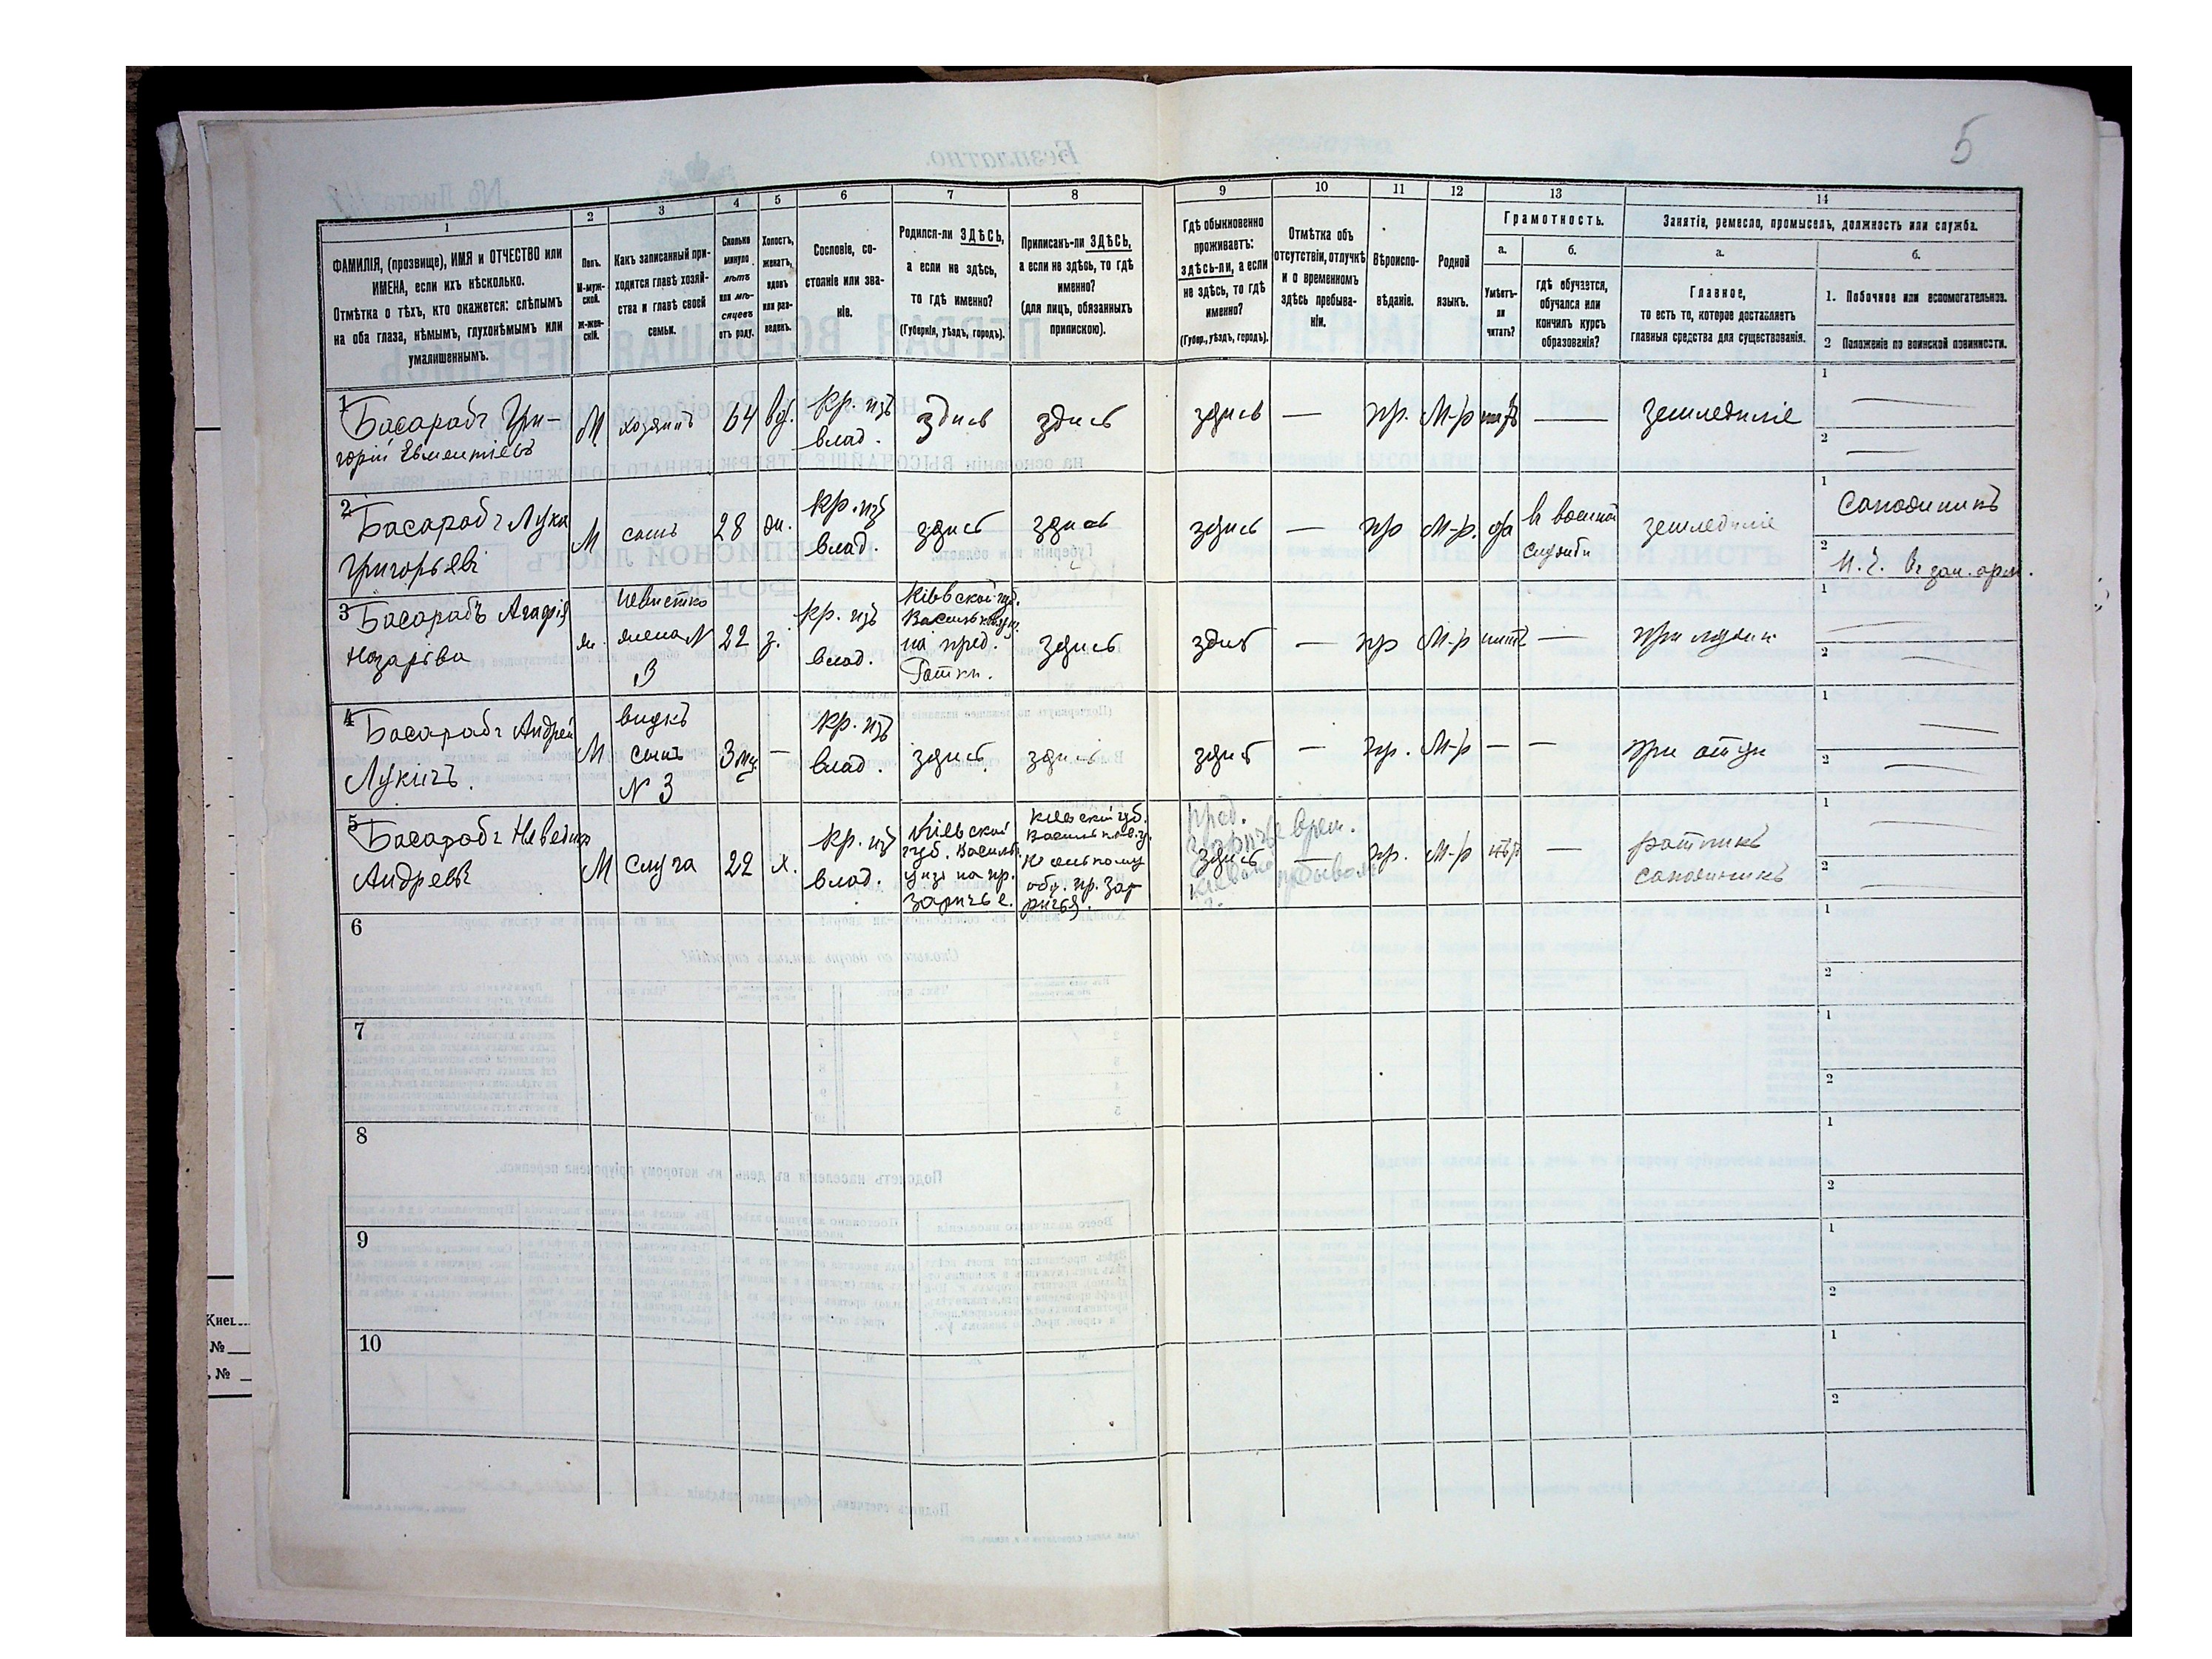 5
1
2
3
4
5
6
7
8
9
10
11
12
13
14
ФАМИЛІЯ, (прозвище), ИМЯ и ОТЧЕСТВО или
ИМЕНА, если ихъ нѣсколько.
Отмѣтка о тѣхъ, кто окажется: слѣпымъ
на оба глаза, нѣмымъ, глухонѣмымъ или
умалишеннымъ.
Полъ.
М-муж-
ской.
ж-жен-
скій.
Какъ записанный при-
ходится главѣ хозяй-
ства и главѣ своей
семьи.
Сколько
минуло
лѣтъ
или мѣ-
сяцевъ
отъ роду.
Холостъ,
женатъ,
вдовъ
или раз-
веденъ.
Сословіе, со-
стояніе или зва-
ніе.
Родился-ли ЗДѢСЬ,
а если не здѣсь,
то гдѣ именно?
(Губернія, уѣздъ, городъ).
Приписанъ-ли ЗДѢСЬ,
а если не здѣсь, то гдѣ
именно?
(для лицъ, обязанныхъ
припискою).
Гдѣ обыкновенно
проживаетъ:
здѣсь-ли, а если
не здѣсь, то гдѣ
именно?
(Губер., уѣздъ, городъ).
Отмѣтка объ
отсутствіи, отлучкѣ
и о временномъ
здѣсь пребыва-
ніи.
Вѣроиспо-
вѣданіе.
Родной
языкъ.
Грамотность.
а.
б.
Умѣетъ-
ли
читать?
гдѣ обучается,
обучался или
кончилъ курсъ
образованія?
Занятіе, ремесло, промыселъ, должность или служба.
а.
б.
Главное,
то есть то, которое доставляетъ
главныя средства для существованія.
1. Побочное или вспомогательное.
2 Положеніе по воинской повинности.
1 Басарабъ Гри-
горій Евментіевъ
М хозяинъ 64 вд. кр. изъ
влад. здись здись здись — пр. М-р — земледиліе
1 —
2 —
2 Басарабъ Лука
Григорьевъ
М сынъ 28 жн. кр. изъ
влад. здись здись здись — пр М-р. да в военной
службѣ земледиліе
1 Сапожникъ
2 Н. ч. Въ зап. арм.
3 Басарабъ Агафія
Назарієва
ж. невистка
жена N
22 з. кр. изъ
влад. Кіевской губ.
на пред.
здись здись — пр М-р —
1 —
2 —
4 Басарабъ Андрей
Лукичъ.
М внукъ
сынъ
N 3
3 мц. — кр. изъ
влад. здись здись здись — пр. М-р — — при отци
1 —
2 —
5 Басарабъ
Андреевъ
М слуга 22 х. кр. изъ
влад. Кіевской
губ. Васильк.
заричье.
Кіевской губ.
здись — пр. М-р —
сапожникъ
1 —
2 —
6
1
2
7
1
2
8
1
2
9
1
2
10
1
2